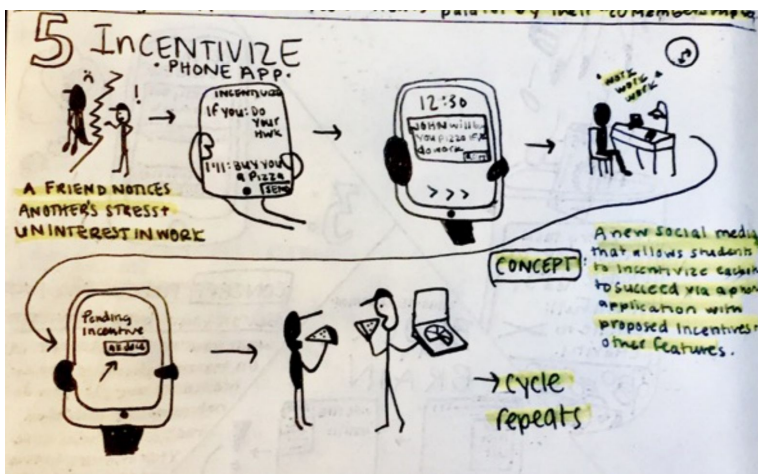 palater by their
5 INCENTIVIZE
• PHONE APP •
!
INCENTIVIZE
If you: Do
Your
HWK
I'll: BUY YOU
a Pizza
SEND
12:30
JOHN will buy
You pizza if u
do work
> > >
WORK
WORK
WORK
A FRIEND NOTICES
ANOTHER'S STRESS +
UNINTEREST IN WORK
CONCEPT:
A new social media
that allows students
to incentivize each
to succeed via a phone
application with
proposed incentives +
other features.
Pending
incentive
→ cycle
repeats